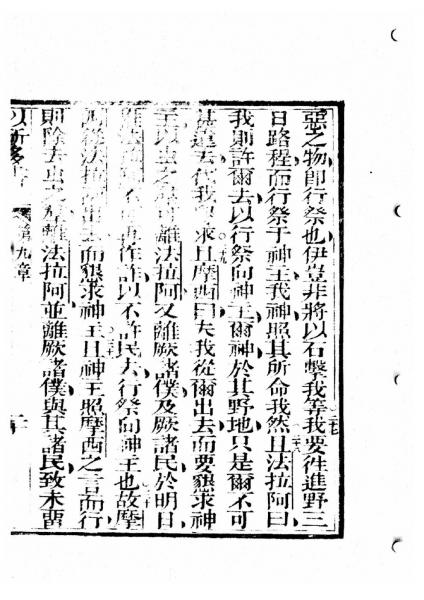 惡之物即行祭也伊豈非將以石擊我等我要徃進野三
日路程而行祭于神主我神照其所命我然且法拉阿曰
我則許爾去以行祭向神主爾神於其野地只是爾不可
甚遠去代我懇求且摩西曰夫我從爾出去而要懇求神
主以虫之離法拉阿又離厥諸僕及厥諸民於明日
法不再作詐以不許民去行祭向神主也故摩
西從法拉阿出去而懇求神主且神主照摩西之言而行
則除去虫離法拉阿並離厥諸僕與其諸民致未留
第九章
二